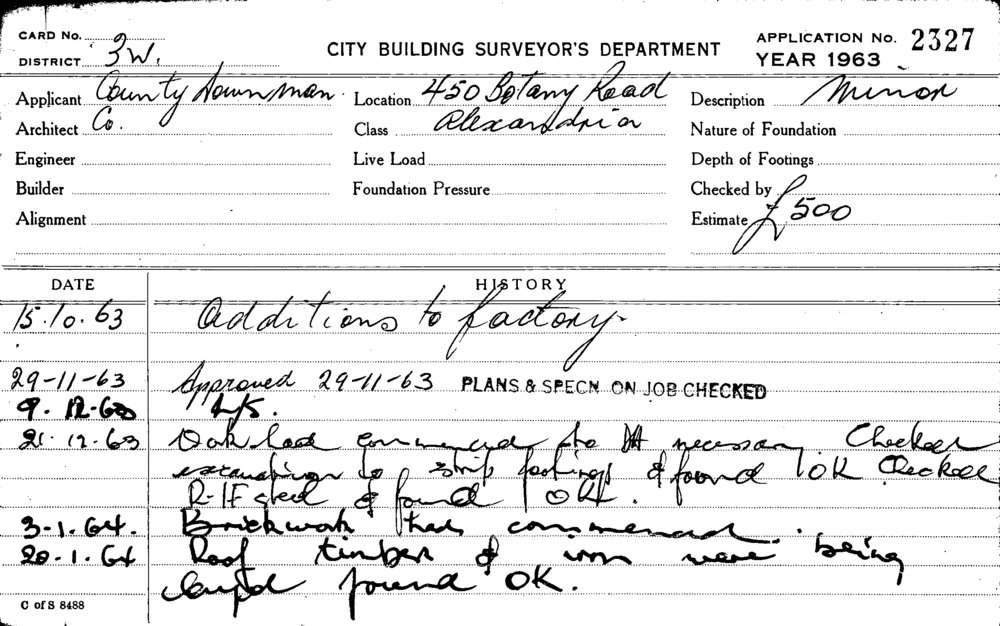 CARD No.
DISTRICT 3W.
CITY BUILDING SURVEYOR'S DEPARTMENT
APPLICATION No. 2327
YEAR 1963
Applicant County Downman Location 450 Botany Road Description Minor
Architect Co. Class Alexandria Nature of Foundation
Engineer Live Load Depth of Footings
Builder Foundation Pressure Checked by
Alignment Estimate £500
DATE HISTORY
15.10.63 Additions to factory.
29-11-63 Approved 29-11-63 PLANS & SPECN ON JOB CHECKED
9.12.63
21.12.63 had commenced necessary Checked
excavation to strip footings & found OK Checked
R-IF steel & found OK.
3-1.64. Brickwork had commenced.
20.1.64 Roof timber & iron were being
found OK.
C of S 8488